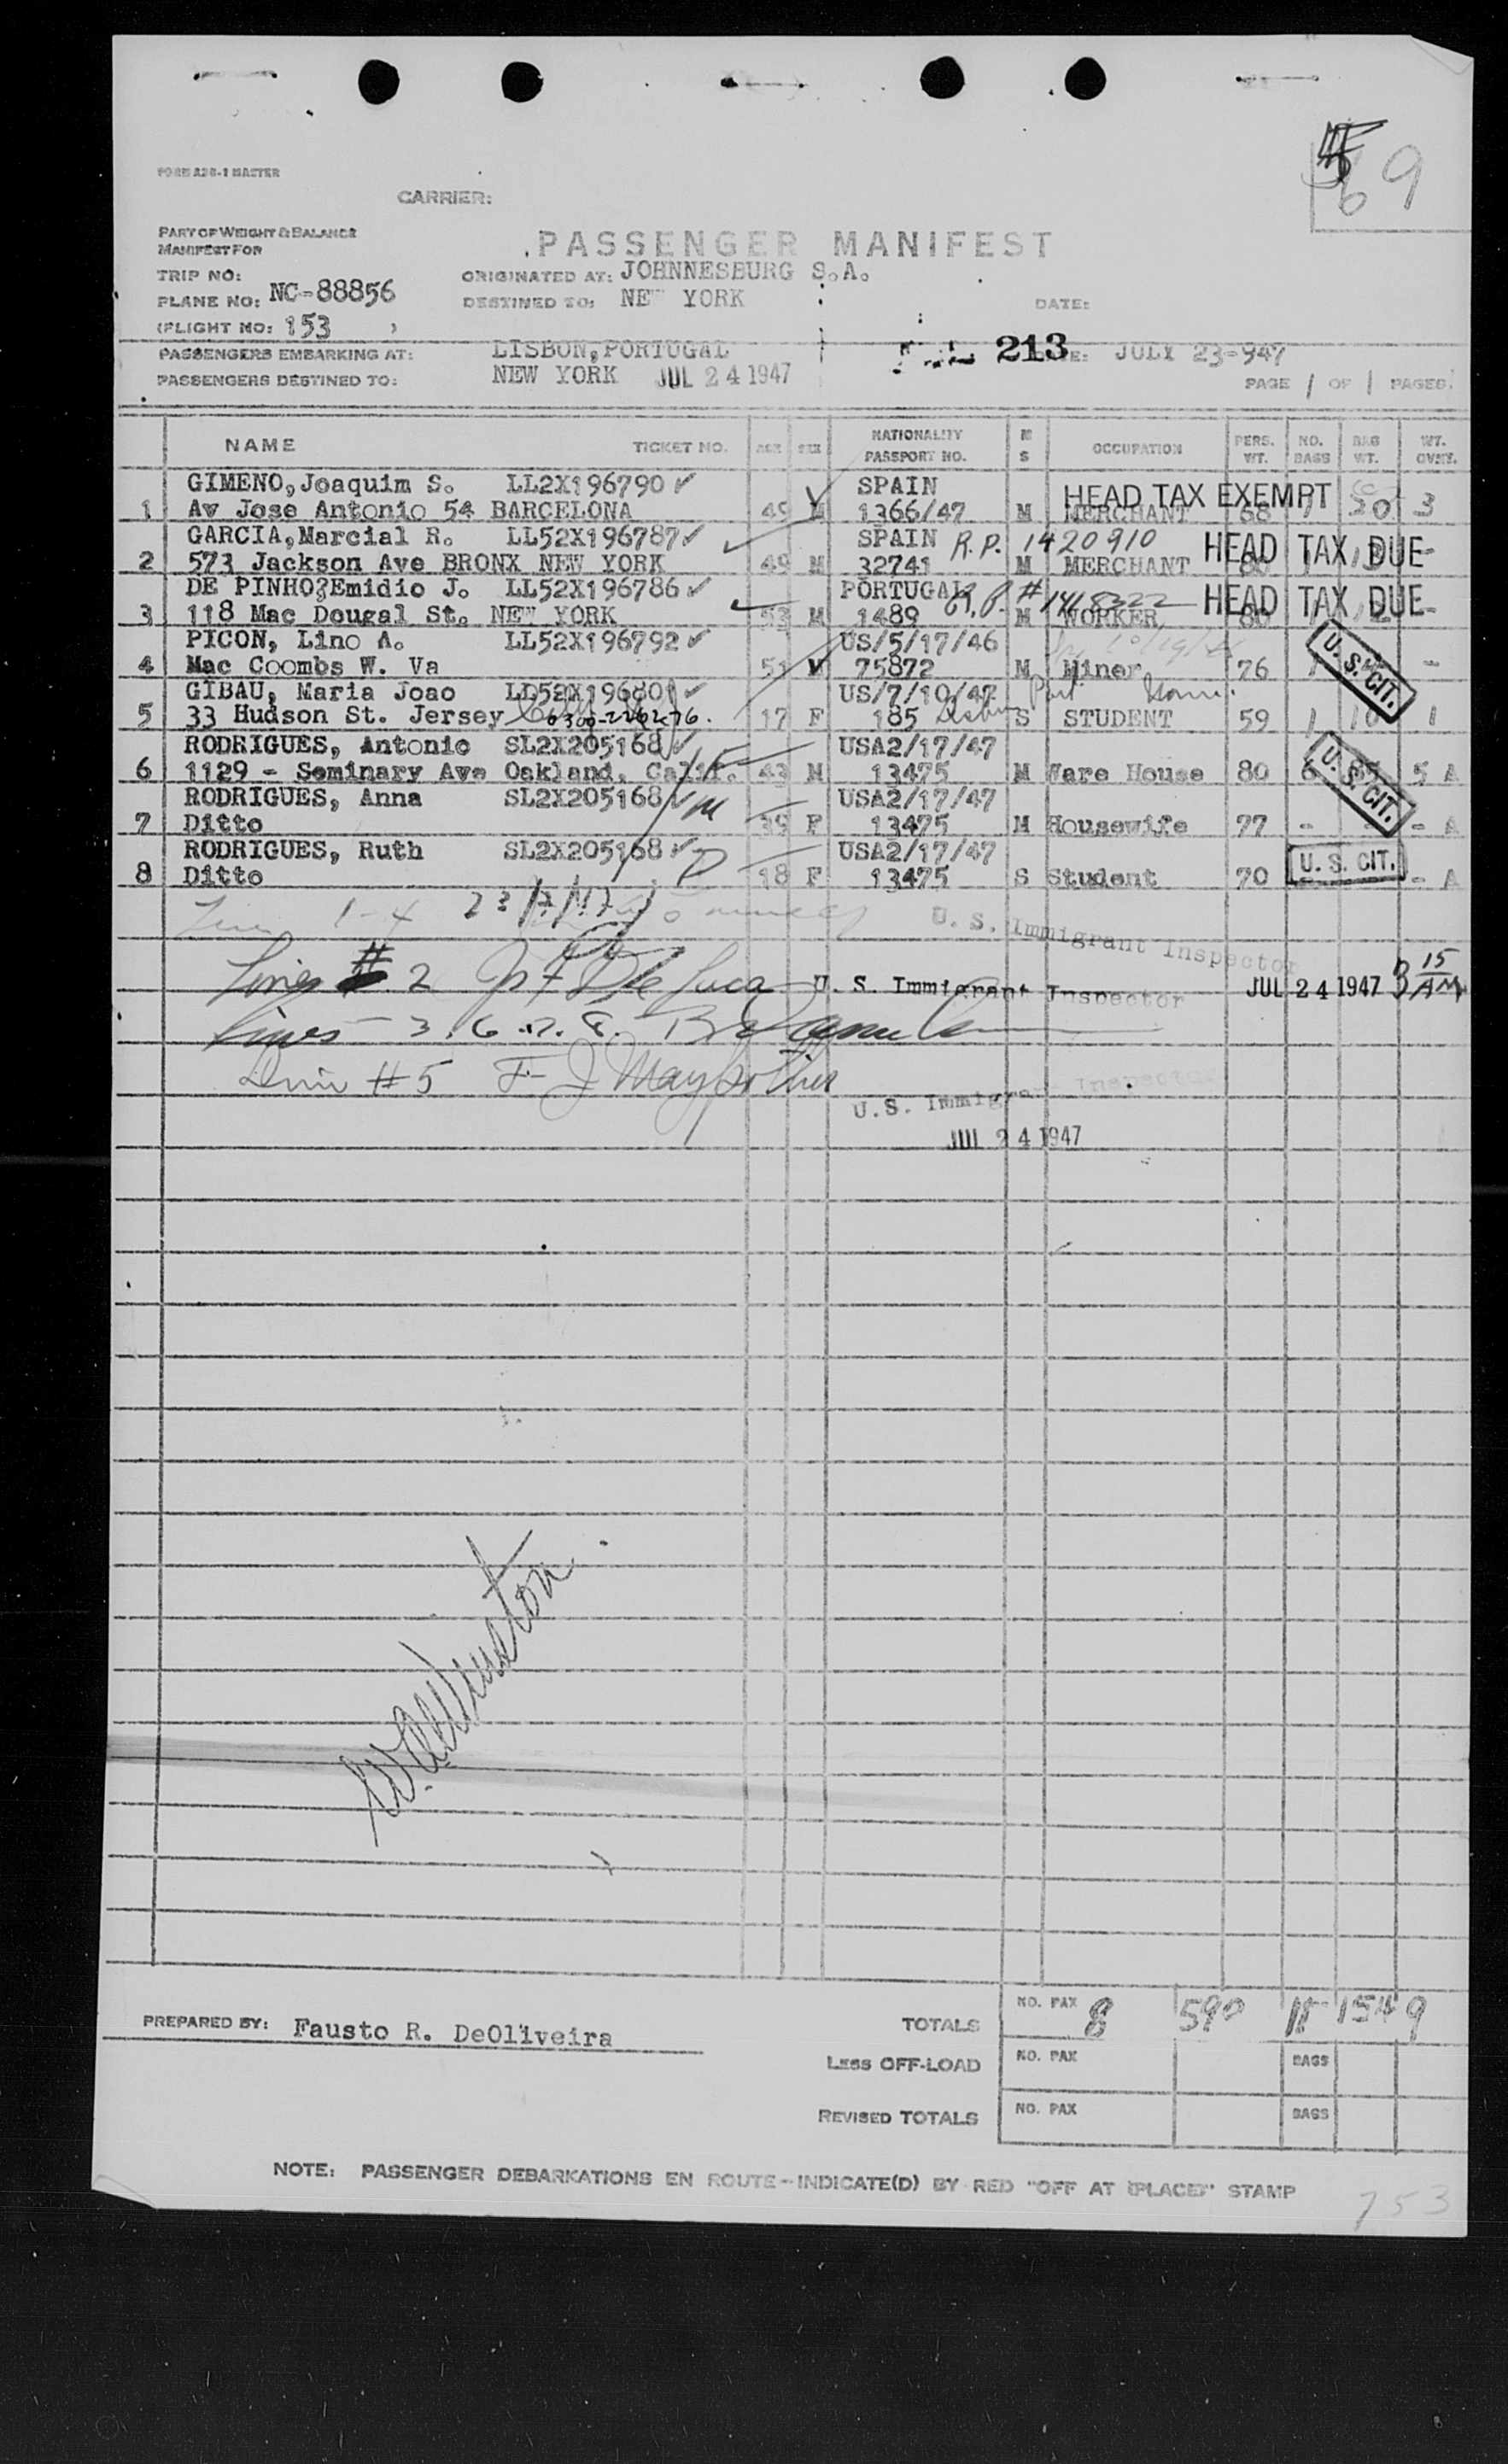 69
FORM A28-1 MASTER
CARRIER:
PART OF WEIGHT & BALANCE
MANIFEST FOR
PASSENGER MANIFEST
TRIP NO:
ORIGINATED AT: JOHNNESBURG S.A.
PLANE NO: NC-88856
DESTINED TO: NEW YORK
DATE:
(FLIGHT NO: 153 )
PASSENGERS EMBARKING AT: LISBON, PORTUGAL
213 JULY 23-947
PASSENGERS DESTINED TO: NEW YORK JUL 24 1947
PAGE 1 OF 1 PAGES.
NAME TICKET NO. AGE SEX NATIONALITY PASSPORT NO. M S OCCUPATION PERS. WT. NO. BAGS BAG WT. WT. OVWT.
GIMENO, Joaquim S. LL2X196790 ✓ SPAIN HEAD TAX EXEMPT
1 Av Jose Antonio 54 BARCELONA 49 M 1366/47 M MERCHANT 88 1 30 3
GARCIA, Marcial R. LL52X196787 ✓ SPAIN R.P. 1420910 HEAD TAX DUE
2 573 Jackson Ave BRONX NEW YORK 49 M 32741 M MERCHANT 80
DE PINHO, Emidio J. LL52X196786 ✓ PORTUGAL R.P. # 1418322 HEAD TAX DUE
3 118 Mac Dougal St. NEW YORK 53 M 1489 M WORKER 80
PICON, Lino A. LL52X196792 ✓ US/5/17/46 U.S. CIT.
4 Mac Coombs W. Va 51 M 75872 M Miner 76 1 -
GIBAU, Maria Joao US/7/10/47
5 33 Hudson St. Jersey City 0300-226276. 17 F 185 Lisbon S STUDENT 59 1 10 1
RODRIGUES, Antonio SL2X205168 ✓ USA2/17/47 U.S. CIT.
6 1129 - Seminary Ave Oakland, Calif. 43 M 13475 M Ware House 80 6 5 A
RODRIGUES, Anna SL2X205168 ✓ M USA2/17/47
7 Ditto 39 F 13475 M Housewife 77 - - A
RODRIGUES, Ruth SL2X205168 ✓ D USA2/17/47 U. S. CIT.
8 Ditto 18 F 13475 S Student 70 - A
1-4
U. S. Immigrant Inspector
Lines # 2 De Luca U. S. Immigrant Inspector JUL 24 1947 3 15 AM
Lines - 3. 6. 7. 8.
Line #5 F J
U.S. Immigrant Inspector
JUL 24 1947
PREPARED BY: Fausto R. DeOliveira
TOTALS NO. PAX 8 590 11 154 9
LESS OFF-LOAD NO. PAX BAGS
REVISED TOTALS NO. PAX BAGS
NOTE: PASSENGER DEBARKATIONS EN ROUTE - INDICATE(D) BY RED "OFF AT (PLACE)" STAMP
753